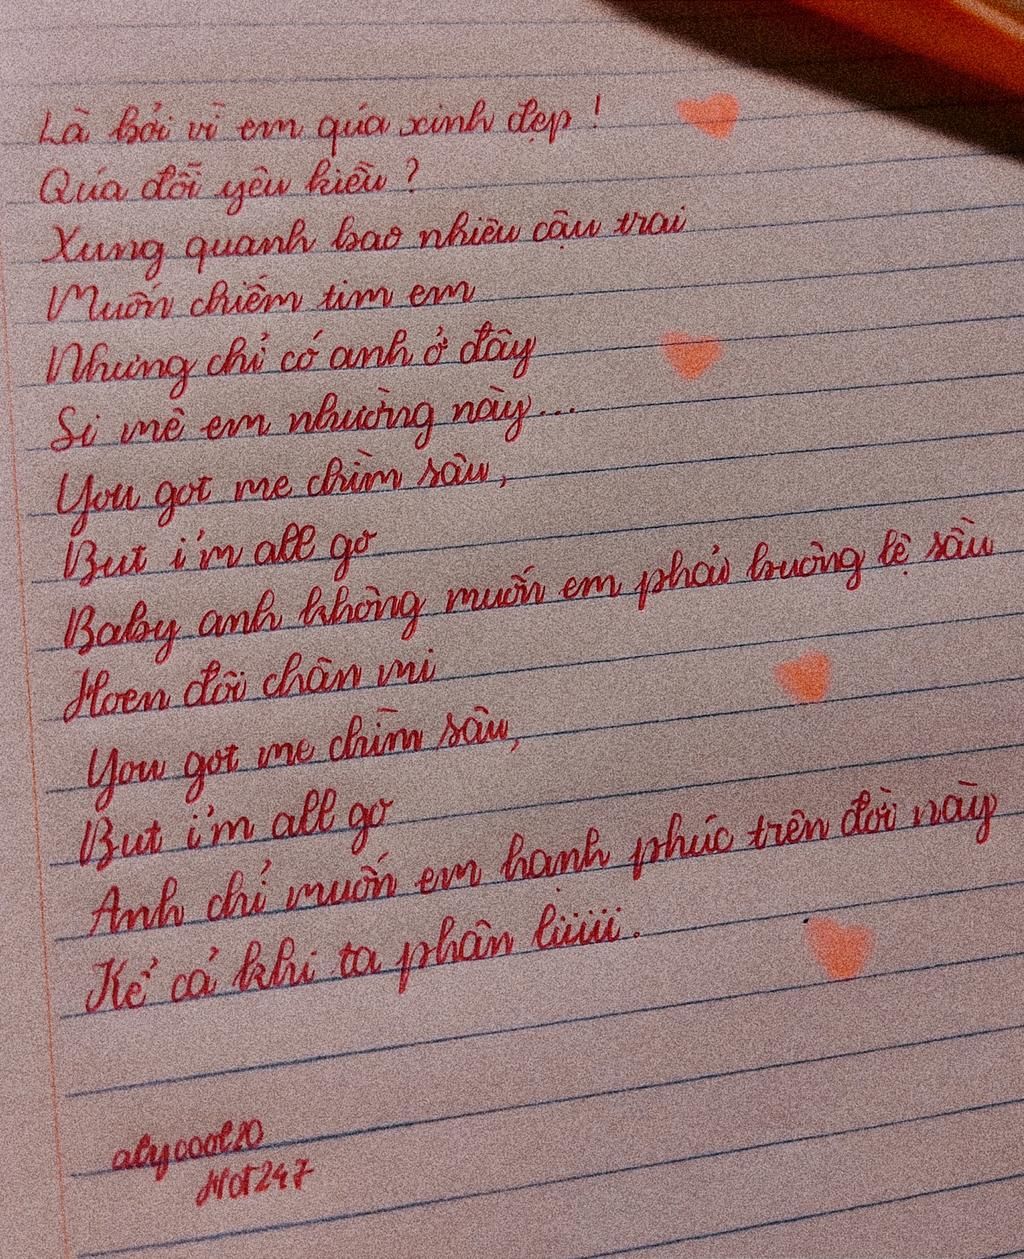 Là bởi vì em qúa xinh đẹp !
Qúa đỗi yêu kiều ?
Xung quanh bao nhiêu cậu trai
Muốn chiếm tim em
Nhưng chỉ có anh ở đây
Si mê em nhường này...
You got me chìm sâu,
But i'm all go
Baby anh không muốn em phải buông lệ sầu
Hoen đôi chân mi
You got me chìm sâu,
But i'm all go
Anh chỉ muốn em hạnh phúc trên đời này
Kể cả khi ta phân liiiii.
alycool20
Hot247